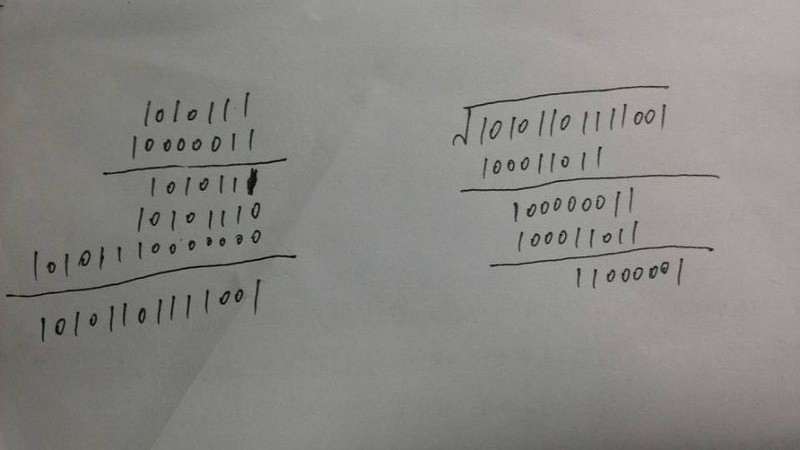 1010111
10000011
1010111
10101110
10101110000000
10101101111001
10101101111001
100011011
100000011
100011011
11000001